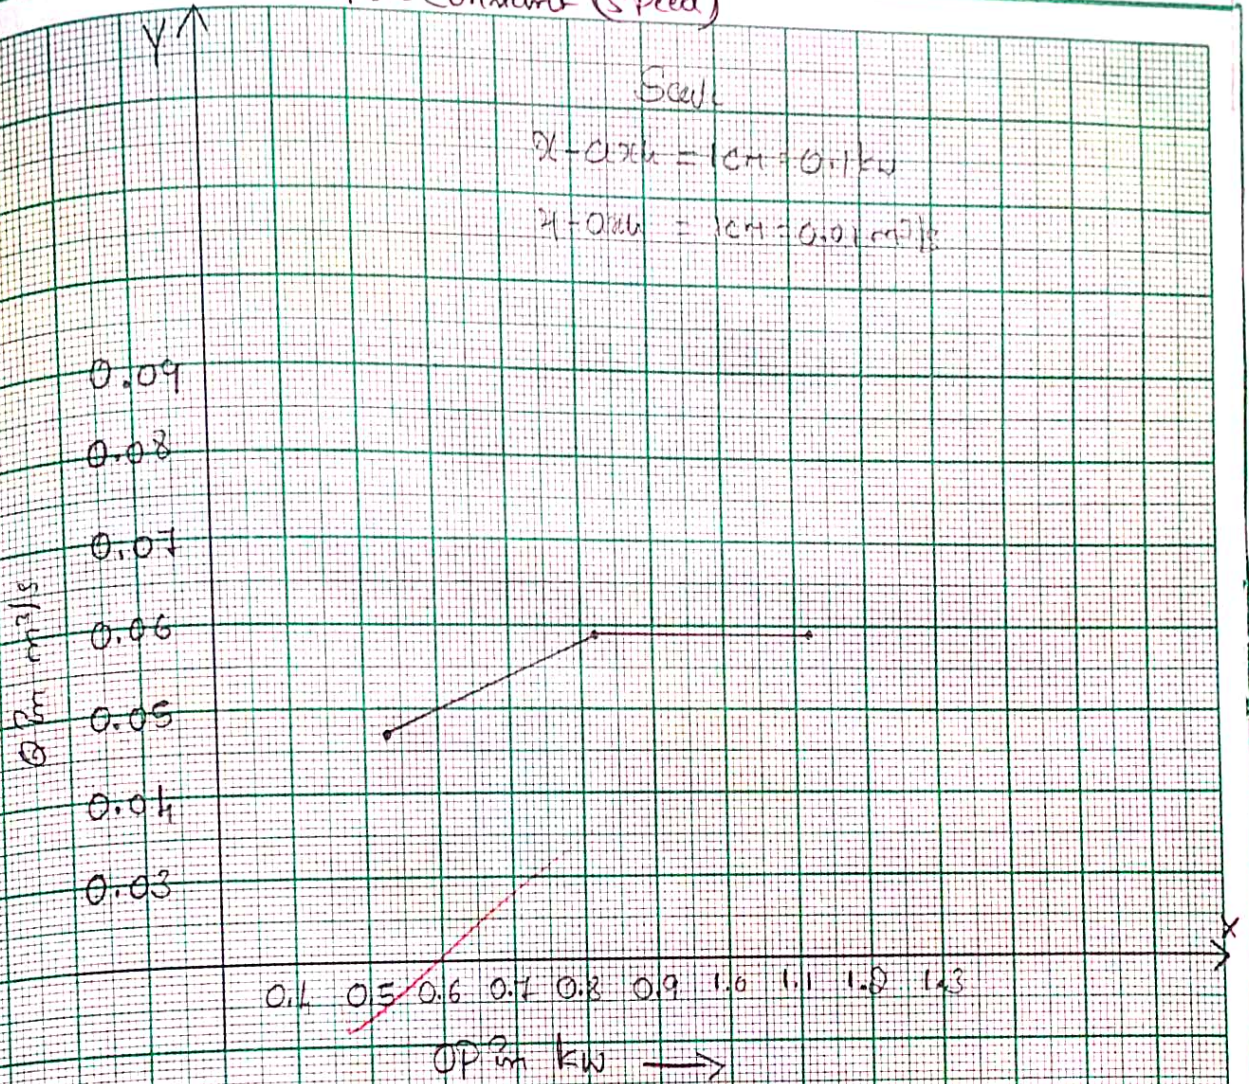 Constant (Speed)
Y
Scale
x-axis = 1cm = 0.1kw
y-axis = 1cm = 0.01 m³/s
0.09
0.08
0.07
0.06
0.05
0.04
0.03
Q in m³/s
X
0.4 0.5 0.6 0.7 0.8 0.9 1.0 1.1 1.2 1.3
OP in kw